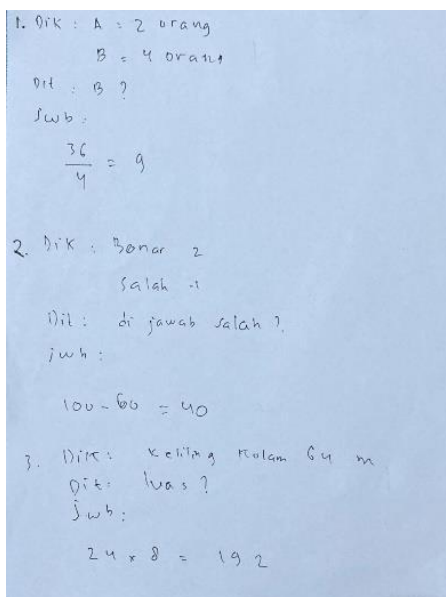 1. Dik : A = 2 orang
B = 4 orang
Dit : B ?
Jwb :
36
4
= 9
2. Dik : Benar 2
Salah -1
Dit : di jawab salah ?
jwb :
100 - 60 = 40
3. Dik : Keliling Kolam 64 m
Dit : luas ?
jwb :
24 x 8 = 192